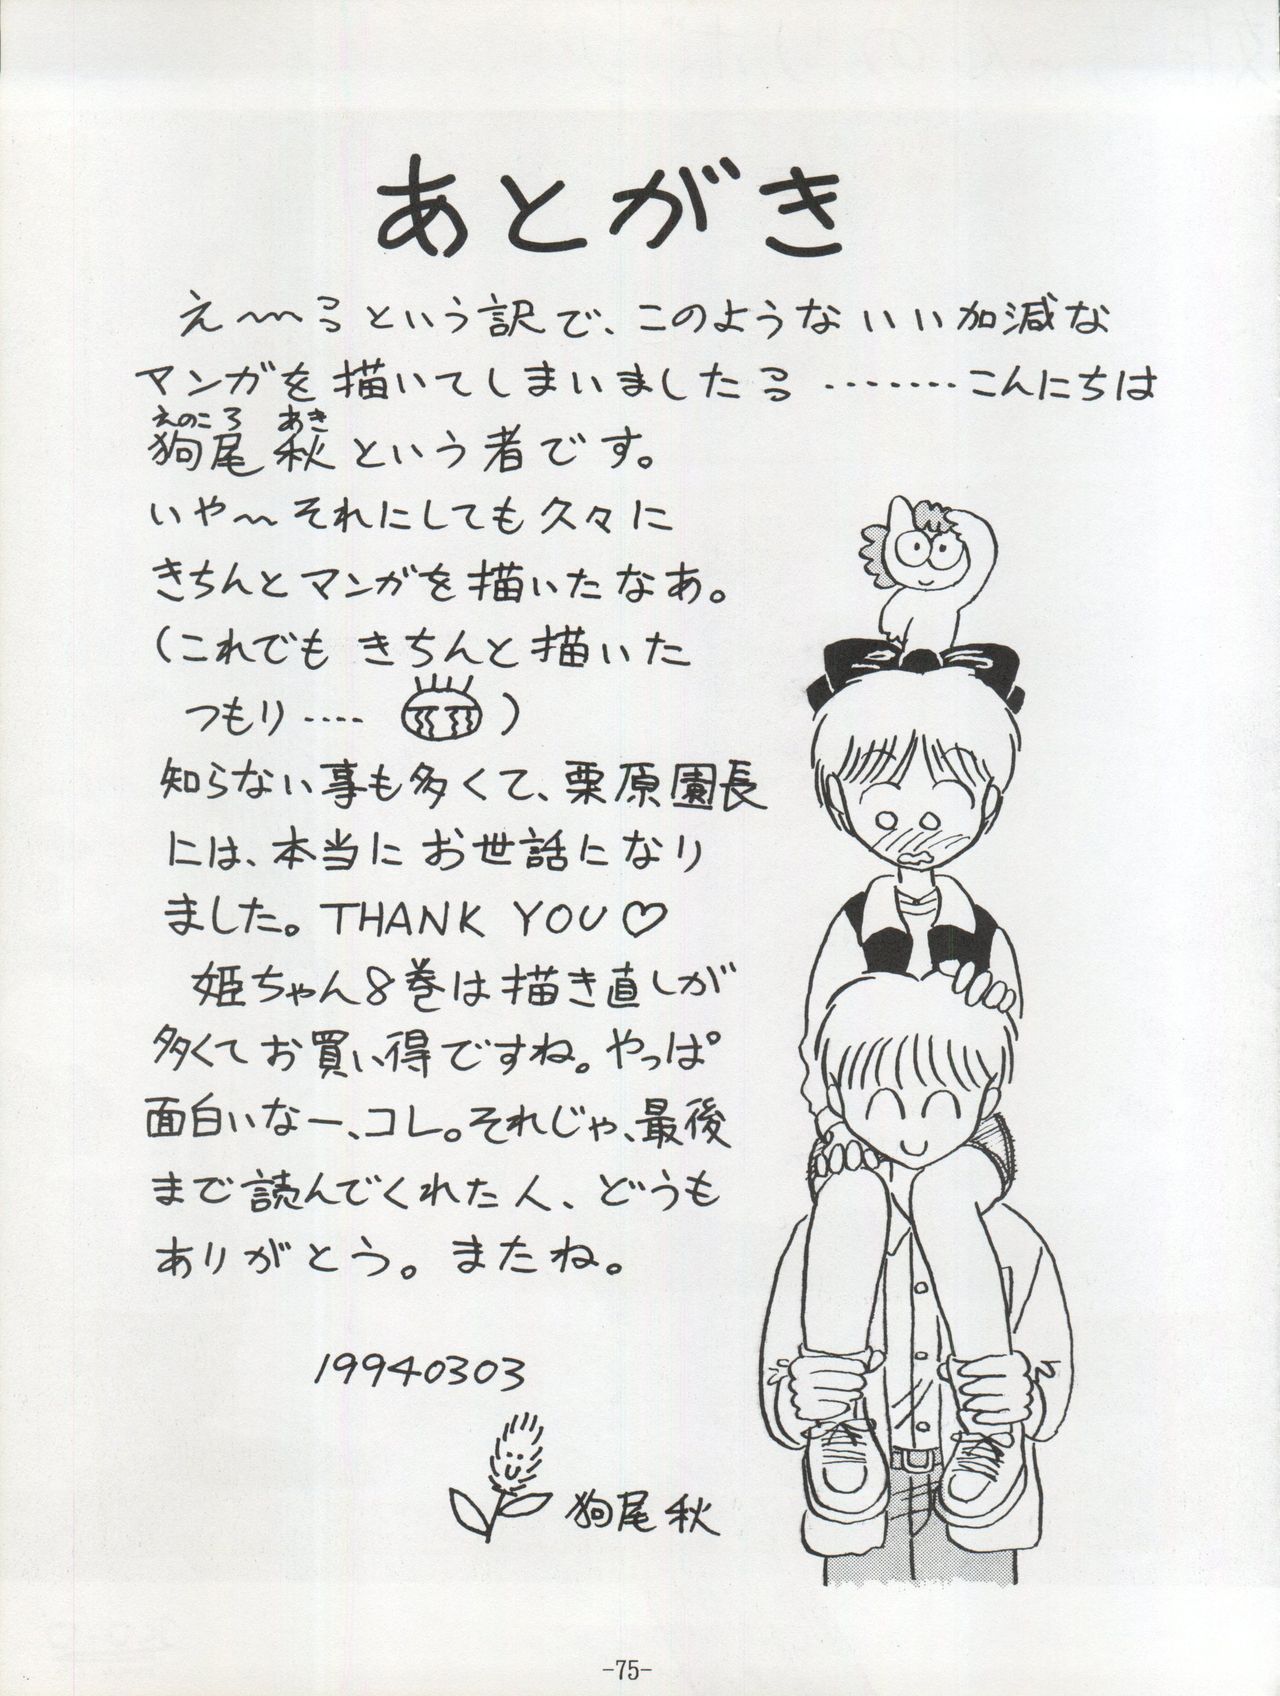 あとがき
え〜〜っっという訳で、このようないい加減な
マンガを描いてしまいましたっっ ‥‥‥‥こんにちは
えのころ あき
狗尾 秋という者です。
いや〜それにしても久々に
きちんとマンガを描いたなあ。
(これでも きちんと描いた
つもり‥‥ )
知らない事も多くて、栗原園長
には、本当にお世話になり
ました。THANK YOU♡
姫ちゃん8巻は描き直しが
多くてお買い得ですね。やっぱ
面白いなー、コレ。それじゃ、最後
まで読んでくれた人、どうも
ありがとう。またね。
19940303
狗尾 秋
-75-